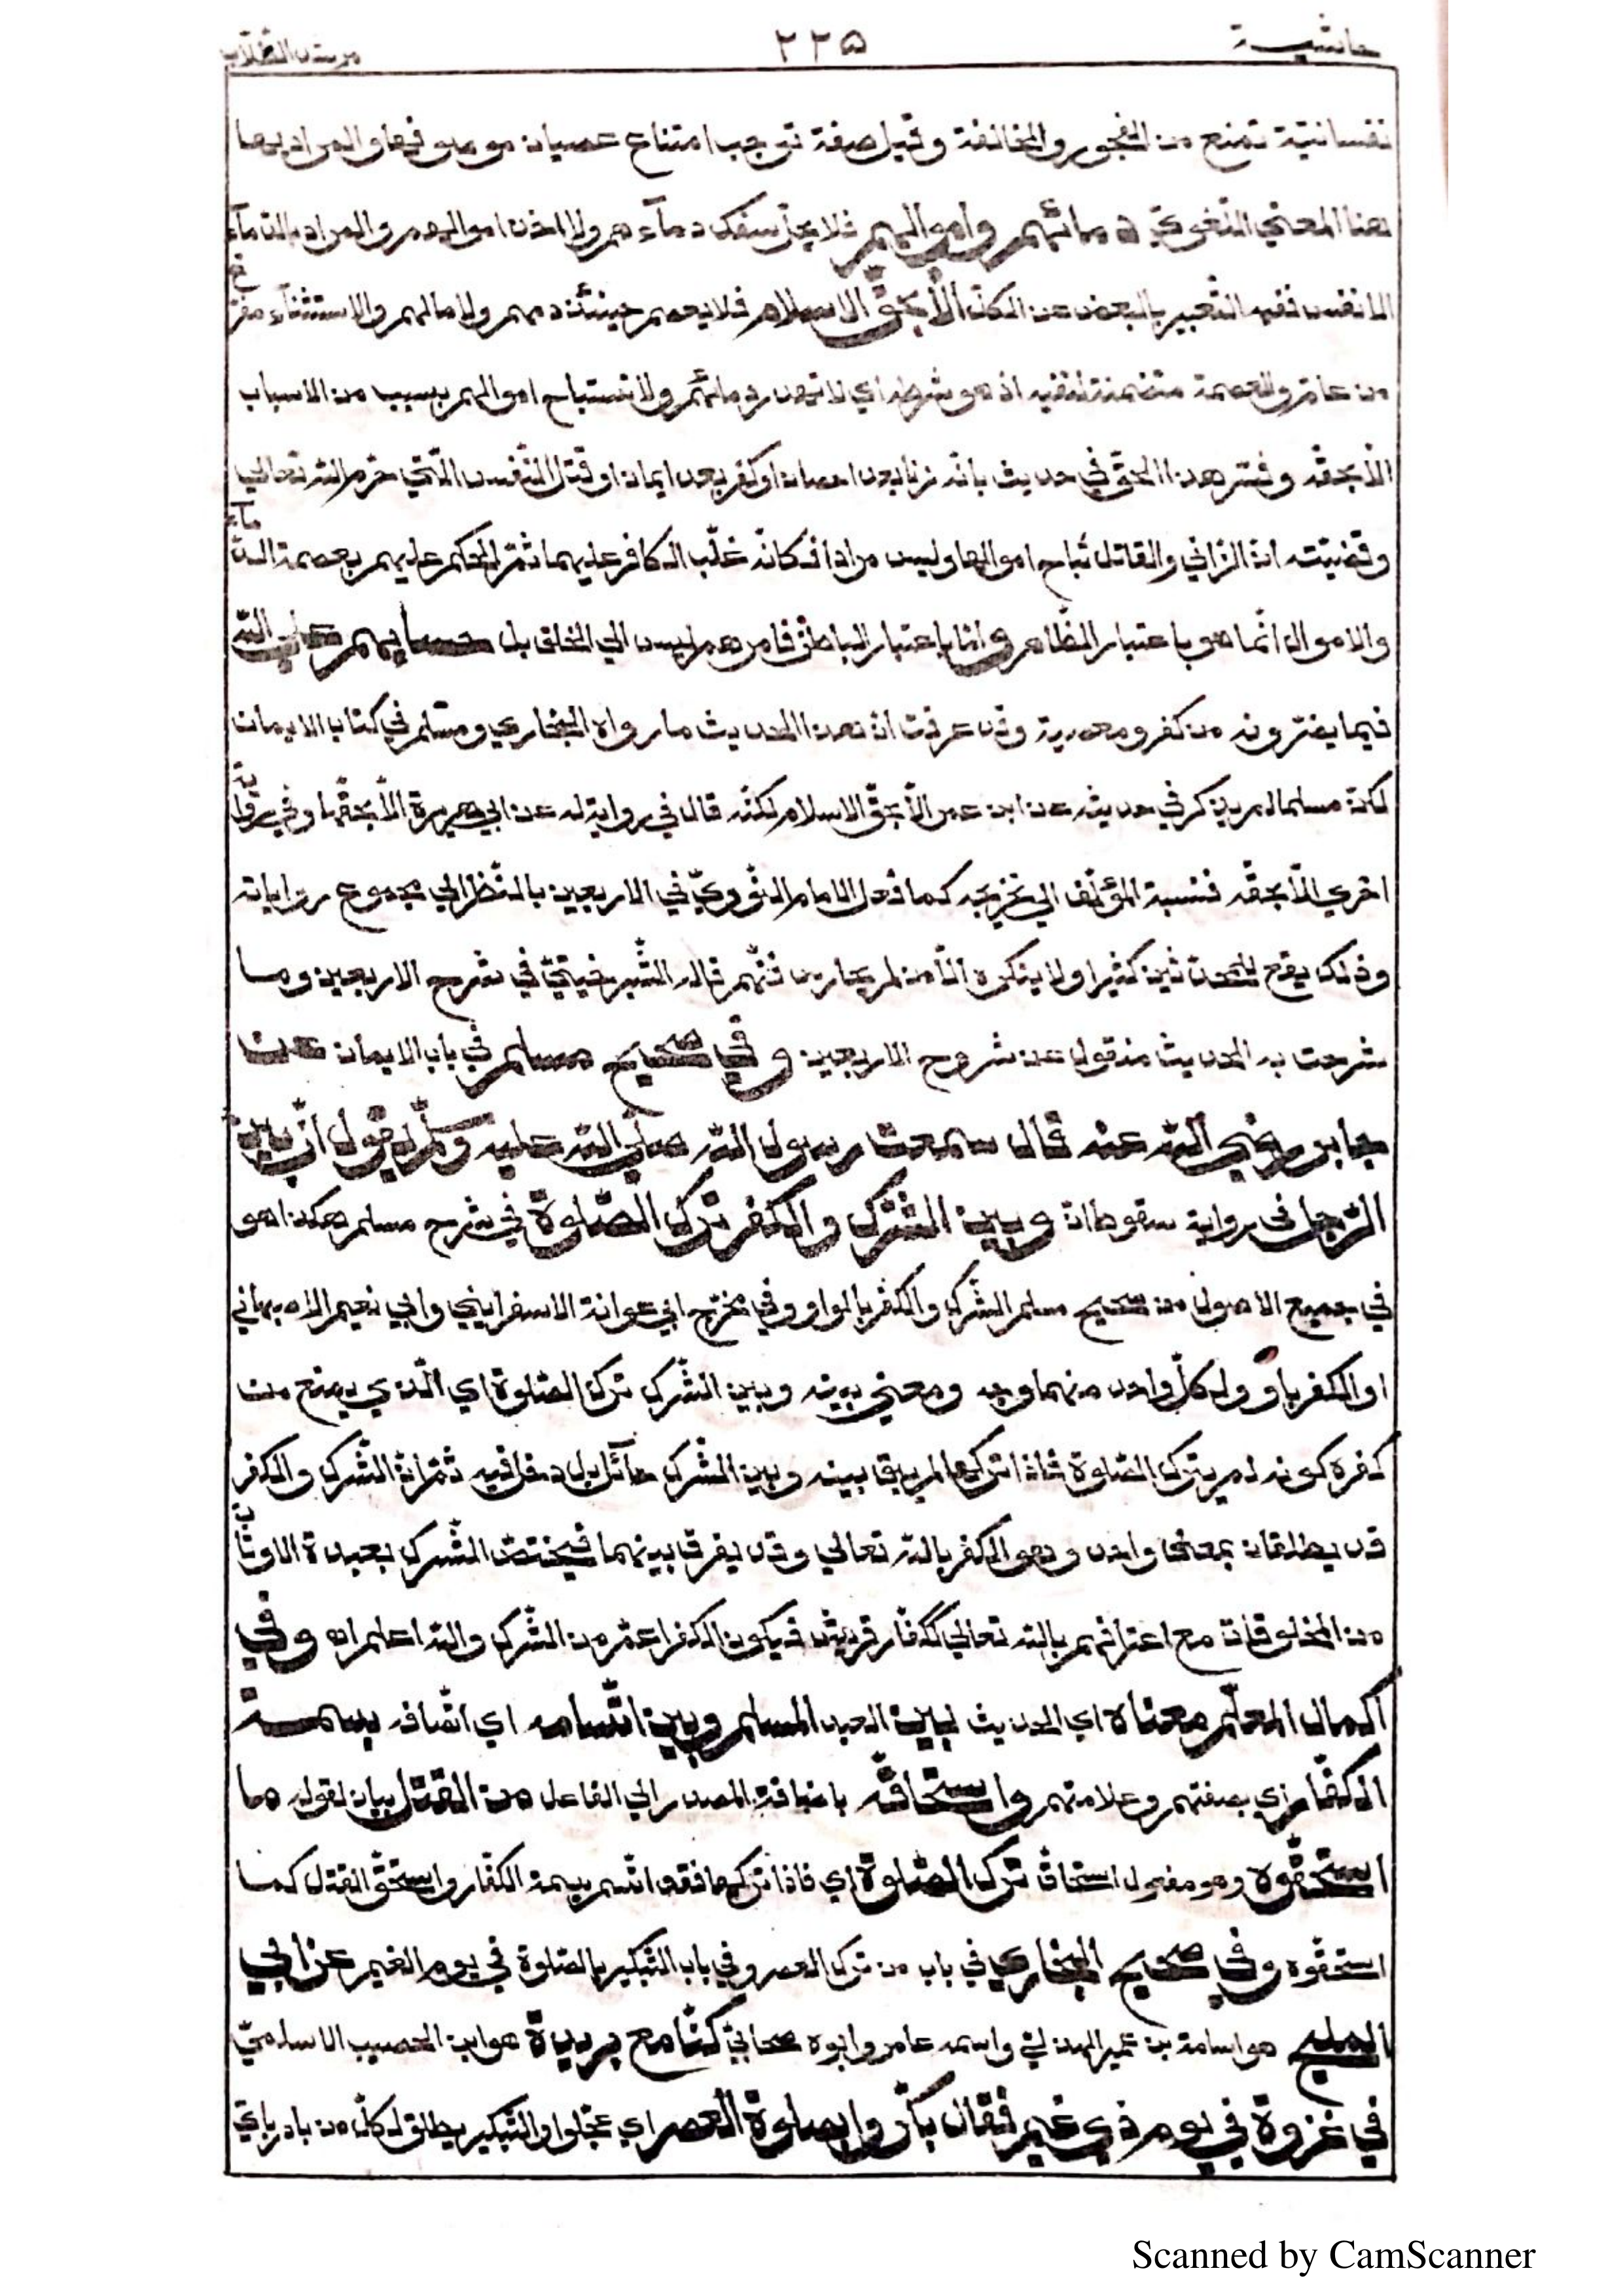 حاشية ٢٢٥ مرشد الطّلّاب
نفسانيّة تمنع من الفجور والمخالفة وقيل صفة توجب امتناع عصيان موصوفها والمراد بها
هنا المعني اللّغويّ دمائهم واموالهم فلا يحلّ سفك دمآءهم ولا اخذ اموالهم والمراد بالدّمآء
الانفس ففيه التّعبير بالبعض عن الكلّ الّا بحقّ الاسلام فلا يعصم حينئذ دمهم ولا مالهم والاستثنآء مفرّغ
من عامّ والعصمة متضمّنة لنفيه اذ هو شرط اي لا تهدر دمائهم ولا تستباح اموالهم بسبب من الاسباب
الّا بحقّه وفسّر هذا الحقّ في حديث بانّه زنا بعد احصان او كفر بعد ايمان او قتل النّفس الّتي حرّم الله تعالي
وقضيّته انّ الزّاني والقاتل تباح اموالهما وليس مرادا فكانّه غلّب الكافر عليهما ثمّ الحكم عليهم بعصمة الدّمآء
والاموال انّما هو باعتبار الظّاهر وامّا باعتبار الباطن فامرهم ليس الي الخلق بل حسابهم علي الله
فيما يسترونه من كفر ومعصية وقد عرفت انّ هذا الحديث ما رواه البخاري ومسلم في كتاب الايمان
لكنّ مسلما لم يذكر في حديثه عن ابن عمر الّا بحقّ الاسلام لكنّه قال في رواية له عن ابي هريرة الّا بحقّها وفي رواية
اخري الّا بحقّه فنسبة المؤلّف الي تخريجه كما فعل الامام النّوويّ في الاربعين بالنّظر الي مجموع رواياته
وذلك يقع للمحدّثين كثيرا ولا ينكره الّا من لم يمارس فنّهم قاله الشّبرخيتيّ في شرح الاربعين وما
شرحت به الحديث منقول من شروح الاربعين وفي صحيح مسلم في باب الايمان عن
جابر رضي الله عنه قال سمعت رسول الله صلّي الله عليه وسلّم يقول انّ بين
الرّجل في رواية سقوط انّ وبين الشّرك والكفر ترك الصّلوة في شرح مسلم هكذا هو
في جميع الاصول من صحيح مسلم الشّرك والكفر بالواو وفي مخرّج ابي عوانة الاسفرايني وابي نعيم الاصبهاني
او الكفر باو ولكلّ واحد منهما وجه ومعني بينه وبين الشّرك ترك الصّلوة اي الّذي يمنع من
كفره كونه لم يترك الصّلوة فاذا تركها لم يبق بينه وبين الشّرك حآئل بل دخل فيه ثمّ انّ الشّرك والكفر
قد يطلقان بمعني واحد وهو الكفر بالله تعالي وقد يفرق بينهما فيختصّ الشّرك بعبدة الاوثان
من المخلوقات مع اعترافهم بالله تعالي ككفّار قريش فيكون الكفر اعمّ من الشّرك والله اعلم اه وفي
اكمال المعلّم معناه اي الحديث لبين العبد المسلم وبين اتّسامه اي اتّصافه بسمة
الكفّار اي بصفتهم وعلامتهم واستحاقه باضافة المصدر الي الفاعل من القتل بيان لقوله ما
استحقّوه وهو مفعول استحاق ترك الصّلوة اي فاذا تركها فقد اتّسم بسمة الكفّار واستحقّ القتل كما
استحقّوه وفي صحيح البخاري في باب من ترك العصر وفي باب التّبكير بالصّلوة في يوم الغيم عن ابي
المليح هو اسامة بن عمير الهذليّ واسمه عامر وابوه صحابيّ كنّا مع بريدة هو ابن الحصيب الاسلميّ
في غزوة في يوم ذي غيم فقال بكّروا بصلوة العصر اي عجّلوا والتّبكير يطلق لكلّ من بادر باي
Scanned by CamScanner